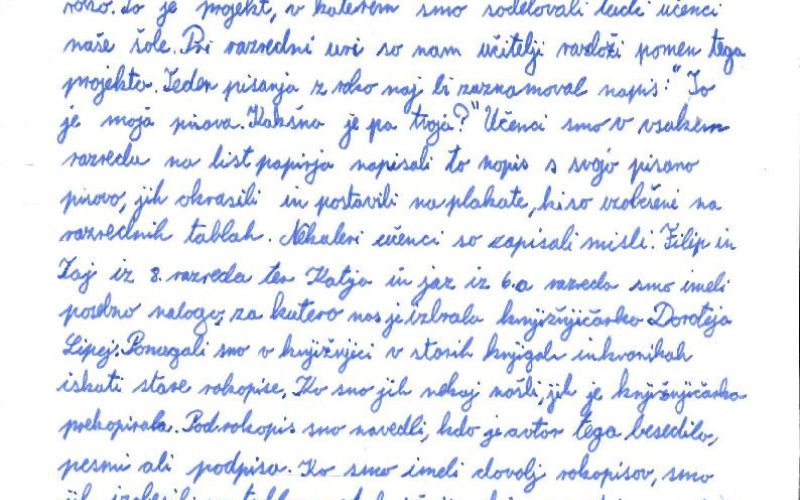 roko. To je projekt, v katerem smo sodelovali tudi učenci
naše šole. Pri razredni uri so nam učitelji razloži pomen tega
projekta. Teden pisanja z roko naj bi zaznamoval napis: "To
je moja pisava. Kakšna je pa tvoja?" Učenci smo v vsakem
razredu na list papirja napisali to napis s svojo pisano
pisavo, jih okrasili in postavili na plakate, ki so izobčeni na
razrednih tablah. Nekateri učenci so zapisali misli. Filip in
Taj iz 8. razreda ter Katja in jaz iz 6.a razreda smo imeli
posebno nalogo, za katero nas je izbrala knjižničarka Doroteja
Lipej. Pomagali smo v knjižnjici v starih knjigah in kronikah
iskati stare rokopise. Ko smo jih nekaj našli, jih je knjižnjičarka
prekopirala. Pod rokopis smo navedli, kdo je avtor tega besedila,
pesmi ali podpisa. Ko smo imeli dovolj rokopisov, smo
jih